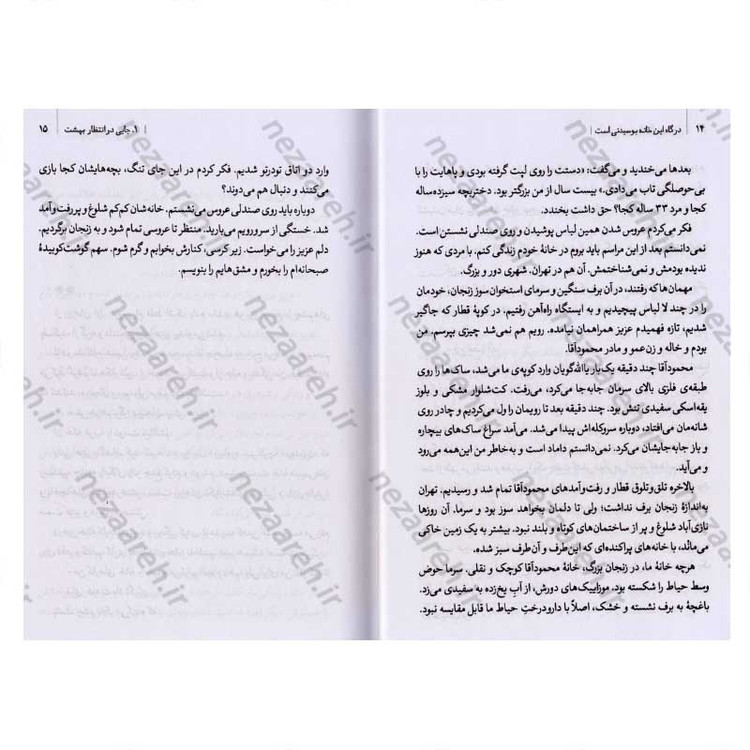 ۱۴ | درگاه این خانه بوسیدنی است
بعدها می‌خندید و می‌گفت: «دستت را روی لپت گرفته بودی و پاهایت را با
بی‌حوصلگی تاب می‌دادی.» بیست سال از من بزرگتر بود. دختربچه سیزده‌ساله
کجا و مرد ۳۳ ساله کجا؟ حق داشت بخندد.
فکر می‌کردم عروس شدن همین لباس پوشیدن و روی صندلی نشستن است.
نمی‌دانستم بعد از این مراسم باید بروم در خانهٔ خودم زندگی کنم. با مردی که هنوز
ندیده بودمش و نمی‌شناختمش. آن هم در تهران. شهری دور و بزرگ.
مهمان‌ها که رفتند، در آن برف سنگین و سرمای استخوان‌سوز زنجان، خودمان
را در چند لا لباس پیچیدیم و به ایستگاه راه‌آهن رفتیم. در کوپهٔ قطار که جاگیر
شدیم، تازه فهمیدم عزیز همراهمان نیامده. رویم هم نمی‌شد چیزی بپرسم. من
بودم و خاله و زن‌عمو و مادر محمودآقا.
محمودآقا چند دقیقه یک‌بار یاالله‌گویان وارد کوپه‌ی ما می‌شد، ساک‌ها را روی
طبقه‌ی فلزی بالای سرمان جابه‌جا می‌کرد، می‌رفت. کت‌شلوار مشکی و بلوز
یقه‌اسکی سفیدی تنش بود. چند دقیقه بعد تا رویمان را ول می‌کردیم و چادر روی
شانه‌مان می‌افتاد، دوباره سروکله‌اش پیدا می‌شد. می‌آمد سراغ ساک‌های بیچاره
و باز جابه‌جایشان می‌کرد. نمی‌دانستم داماد است و به‌خاطر من این‌همه می‌رود
و می‌آید.
بالاخره تاق‌وتلوق قطار و رفت‌وآمدهای محمودآقا تمام شد و رسیدیم. تهران
به‌اندازهٔ زنجان برف نداشت؛ ولی تا دلمان بخواهد سوز بود و سرما. آن روزها
نازی‌آباد شلوغ و پر از ساختمان‌های کوتاه و بلند نبود. بیشتر به یک زمین خاکی
می‌ماند، با خانه‌های پراکنده‌ای که این‌طرف و آن‌طرف سبز شده.
هرچه خانهٔ ما، در زنجان بزرگ، خانهٔ محمودآقا کوچک و نقلی. سرما حوض
وسط حیاط را شکسته بود. موزاییک‌های دورش، از آبِ یخ‌زده به سفیدی می‌زد.
باغچهٔ به برف نشسته و خشک، اصلاً با دارودرختِ حیاط ما قابل مقایسه نبود.
۱. جایی در انتظار بهشت | ۱۵
وارد دو اتاق تودرتو شدیم. فکر کردم در این جای تنگ، بچه‌هایشان کجا بازی
می‌کنند و دنبال هم می‌دوند؟
دوباره باید روی صندلی عروس می‌نشستم. خانه‌شان کم‌کم شلوغ و پررفت‌وآمد
شد. خستگی از سرورویم می‌بارید. منتظر تا عروسی تمام شود و به زنجان برگردیم.
دلم عزیز را می‌خواست. زیر کرسی، کنارش بخوابم و گرم شوم. سهم گوشت‌کوبیدهٔ
صبحانه‌ام را بخورم و مشق‌هایم را بنویسم.
nezaareh.ir
nezaareh.ir
nezaareh.ir
nezaareh.ir
nezaareh.ir
nezaareh.ir
nezaareh.ir
nezaareh.ir